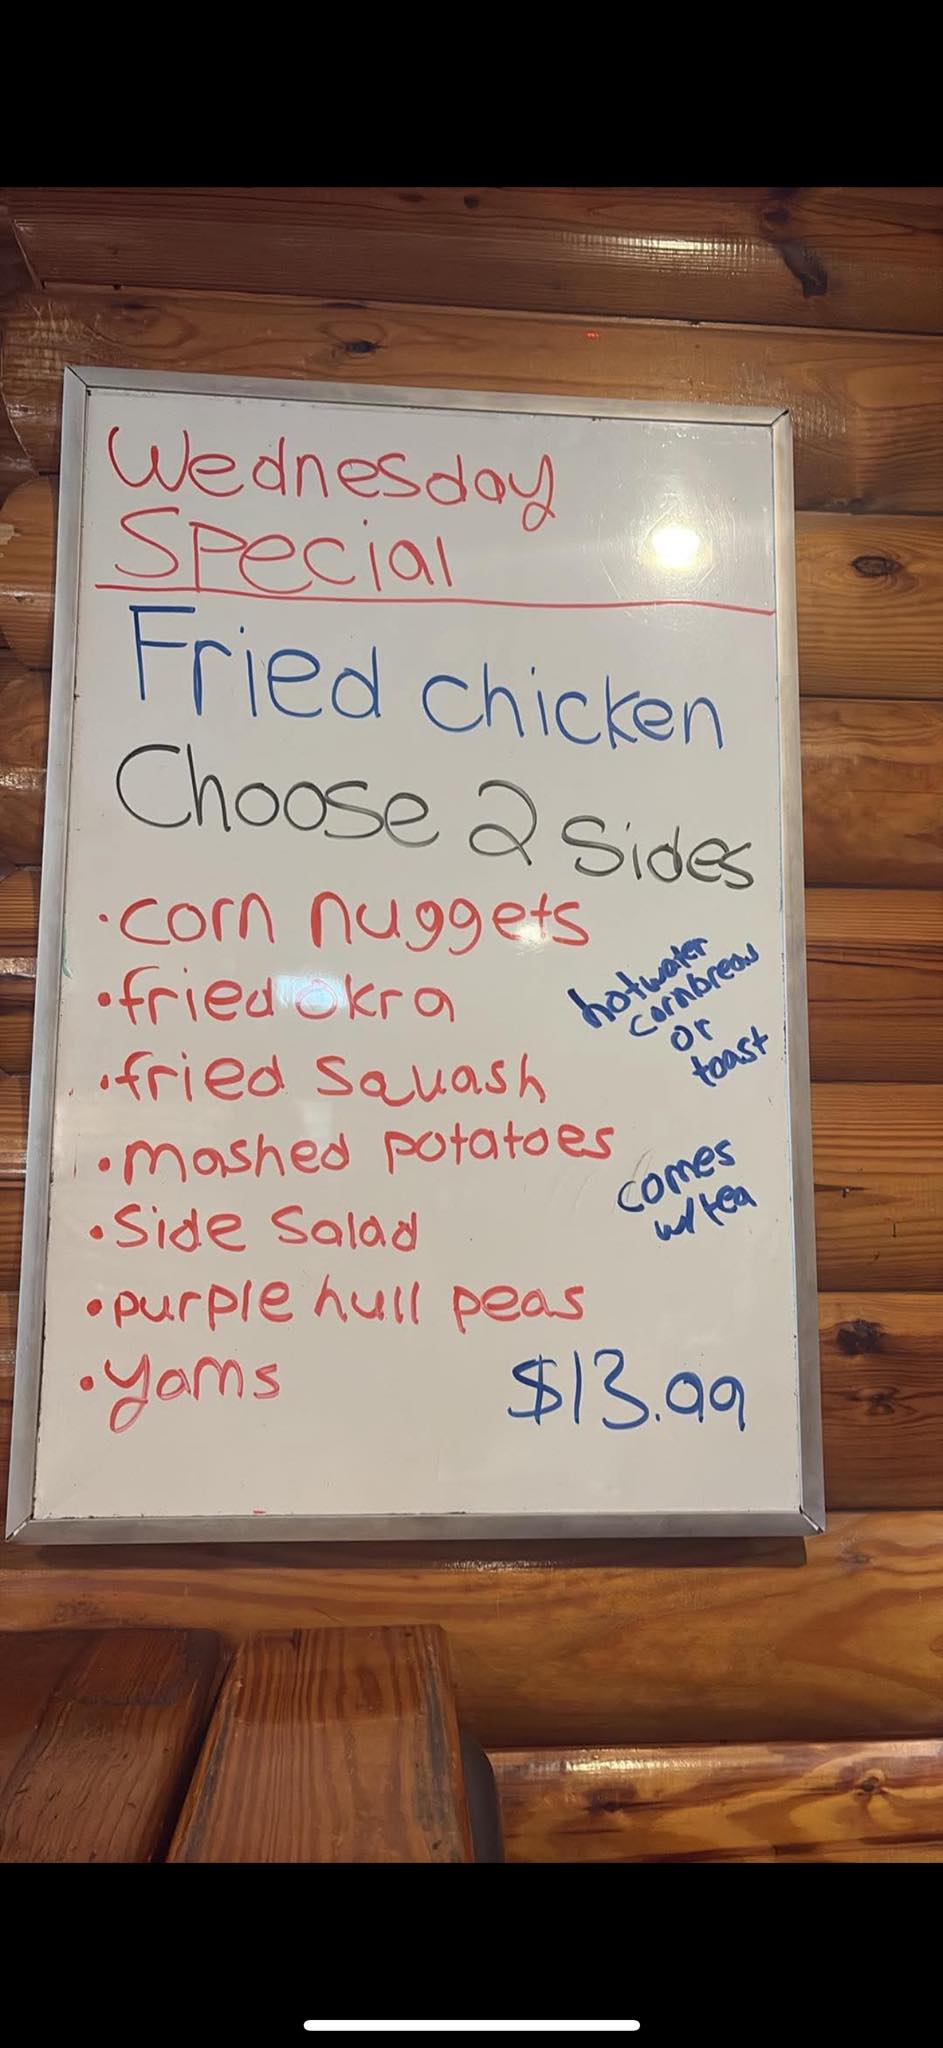 Wednesday
Special
Fried chicken
Choose 2 sides
• corn nuggets
• fried okra
• fried squash
• mashed potatoes
• Side Salad
• purple hull peas
• yams
hotwater
cornbread
or
toast
comes
w/ tea
$13.99